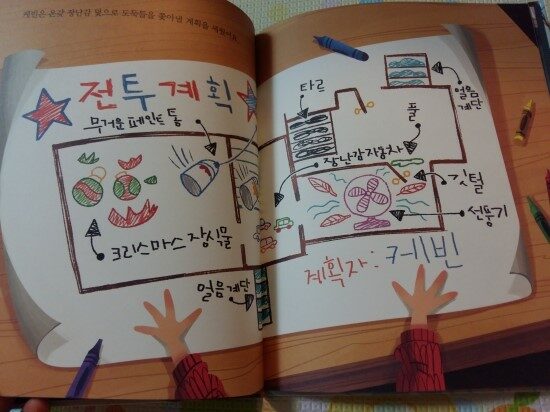 케빈은 온갖 장난감 덫으로 도둑들을 쫓아낼 계획을 세웠어요.
전투계획
무거운 페인트 통
크리스마스 장식물
얼음 계단
타르
얼음
계단
풀
장난감 자동차
깃털
선풍기
계획자: 케빈